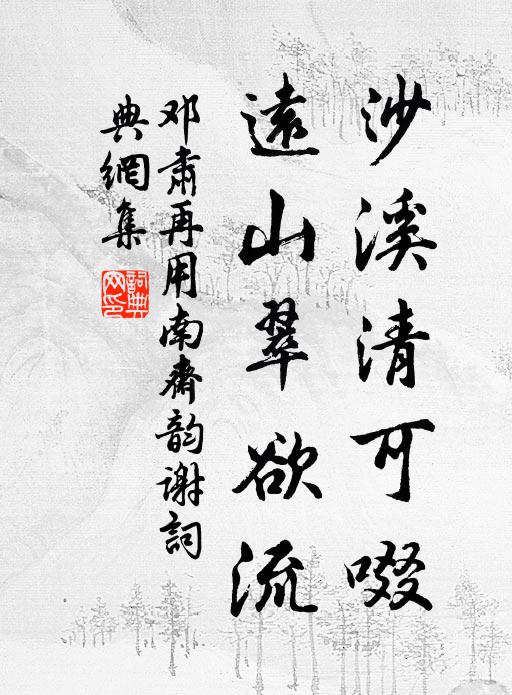 沙溪清可啜
遠山翠欲流
邓肅再用南齋韵谢詞
典網集
詞典
网印